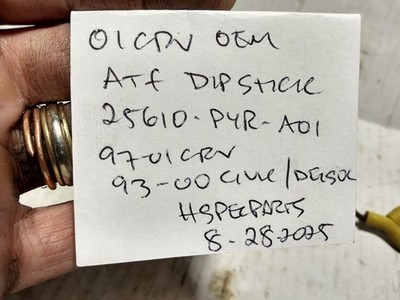 01 CRV OEM
ATF DIPSTICK
25610-P4R-A01
97-01 CRV
93-00 CIVIC/DELSOL
HSPECPARTS
8-28-2025